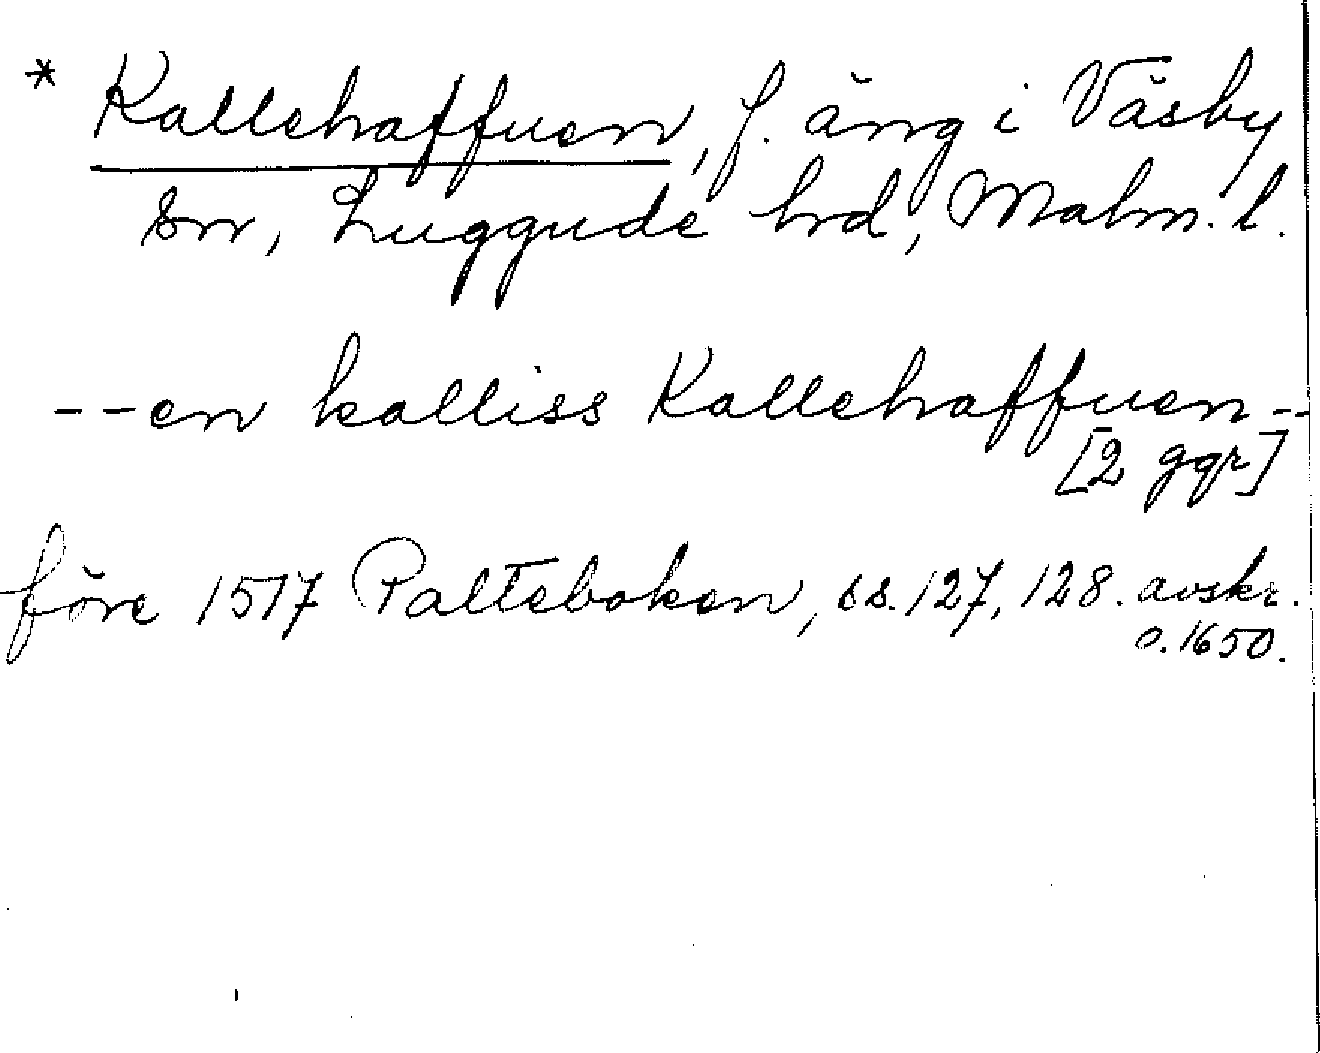 * Kallehaffuen, f. äng i Väsby
sn, Luggude hrd, Malm. l.
--en kalliss Kallehaffuen--
[2 ggr]
före 1517 Palteboken, ss. 127, 128. avskr.
o. 1650.